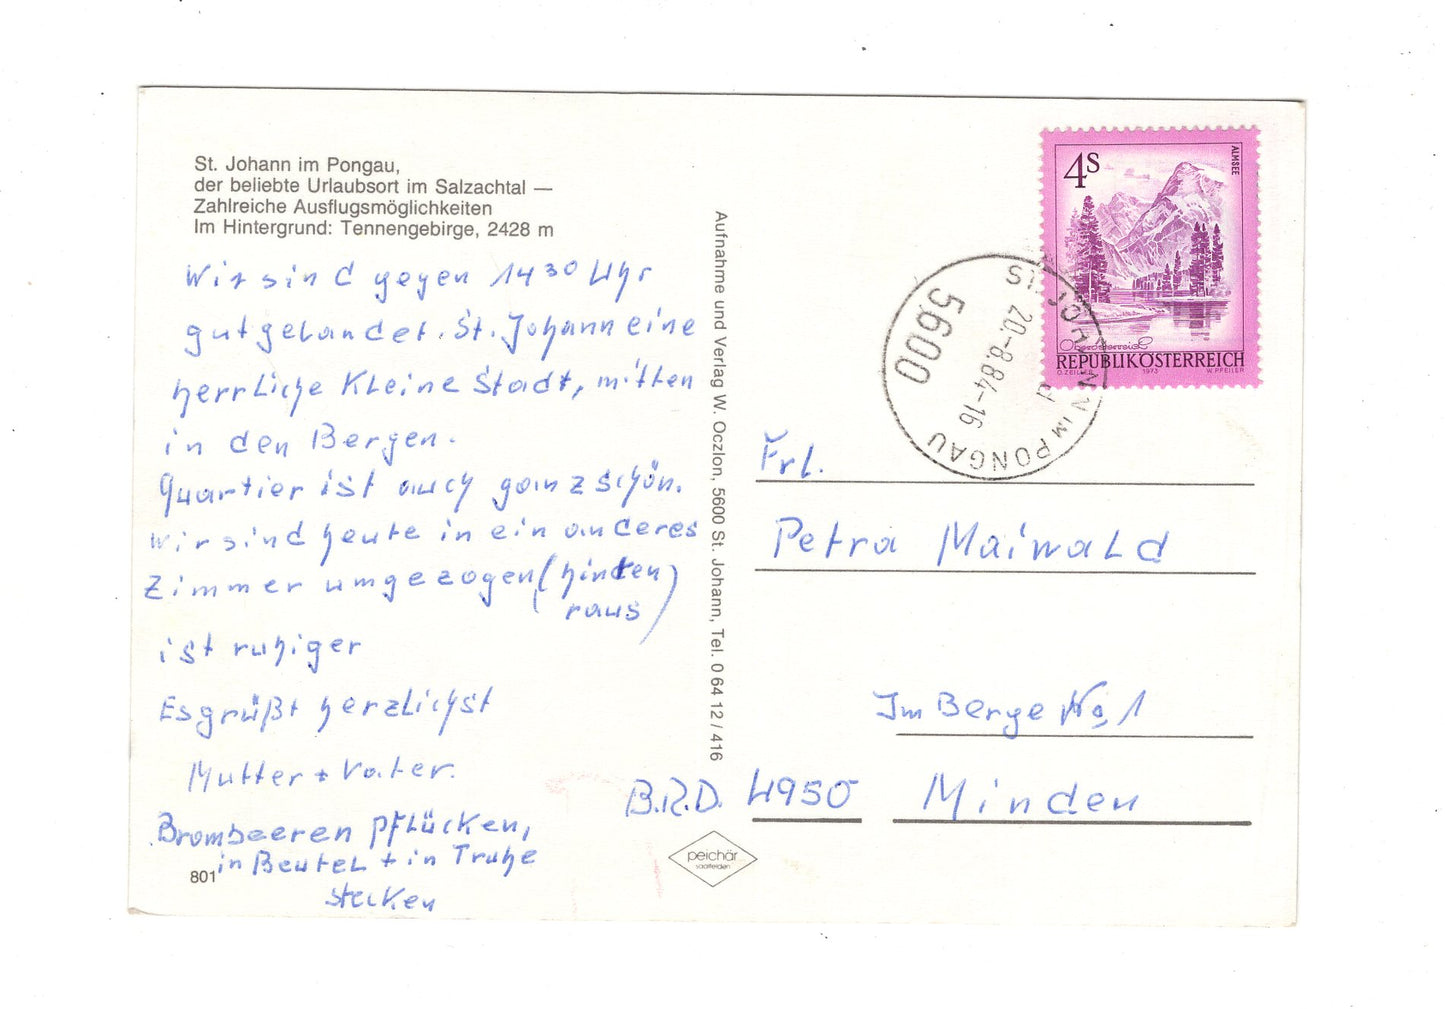 St. Johann im Pongau,
der beliebte Urlaubsort im Salzachtal —
Zahlreiche Ausflugsmöglichkeiten
Im Hintergrund: Tennengebirge, 2428 m
Wir sind gegen 14 30 Uhr
gut gelandet. St. Johann eine
herrliche kleine Stadt, mitten
in den Bergen.
Quartier ist auch ganz schön.
wir sind heute in ein anderes
Zimmer umgezogen (hinten
raus)
ist ruhiger
Es grüßt herzlichst
Mutter + Vater.
Brombeeren pflücken,
in Beutel + in Truhe
stecken
801
Aufnahme und Verlag W. Oczlon, 5600 St. Johann, Tel. 0 64 12 / 416
peichär
saalfelden
4S
ALMSEE
Oberösterreich
REPUBLIK ÖSTERREICH
O. ZEILLER 1973 W. PFEILER
5600
20.-8.84-16
ST. JOHANN IM PONGAU
d
Frl.
Petra Maiwald
Im Berge No 1
B.R.D. 4950 Minden